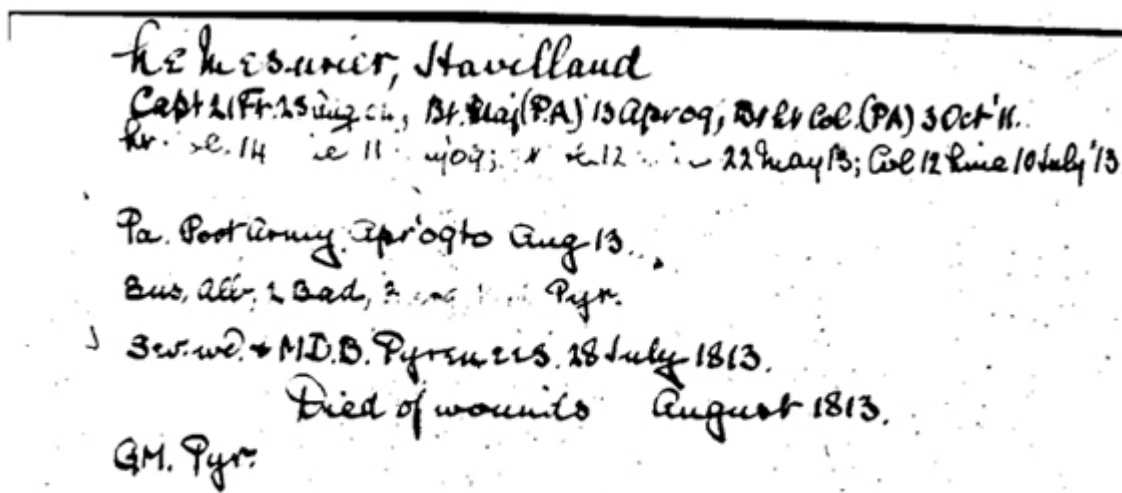 Le Mesurier, Havilland
Capt 21 Ft. 25 Aug 04, Bt. Maj (P.A) 13 Apr 09, Bt Lt Col. (PA) 3 Oct 11.
14 11 09; 12 22 May 13; Col 12 Line 10 July '13
Pa. Port Army. Apr '09 to Aug 13.
Bus, Alb, 2 Bad, Pyr.
Sev. wd. & M.D.B. Pyrenees. 28 July 1813.
Died of wounds August 1813.
GM. Pyr.